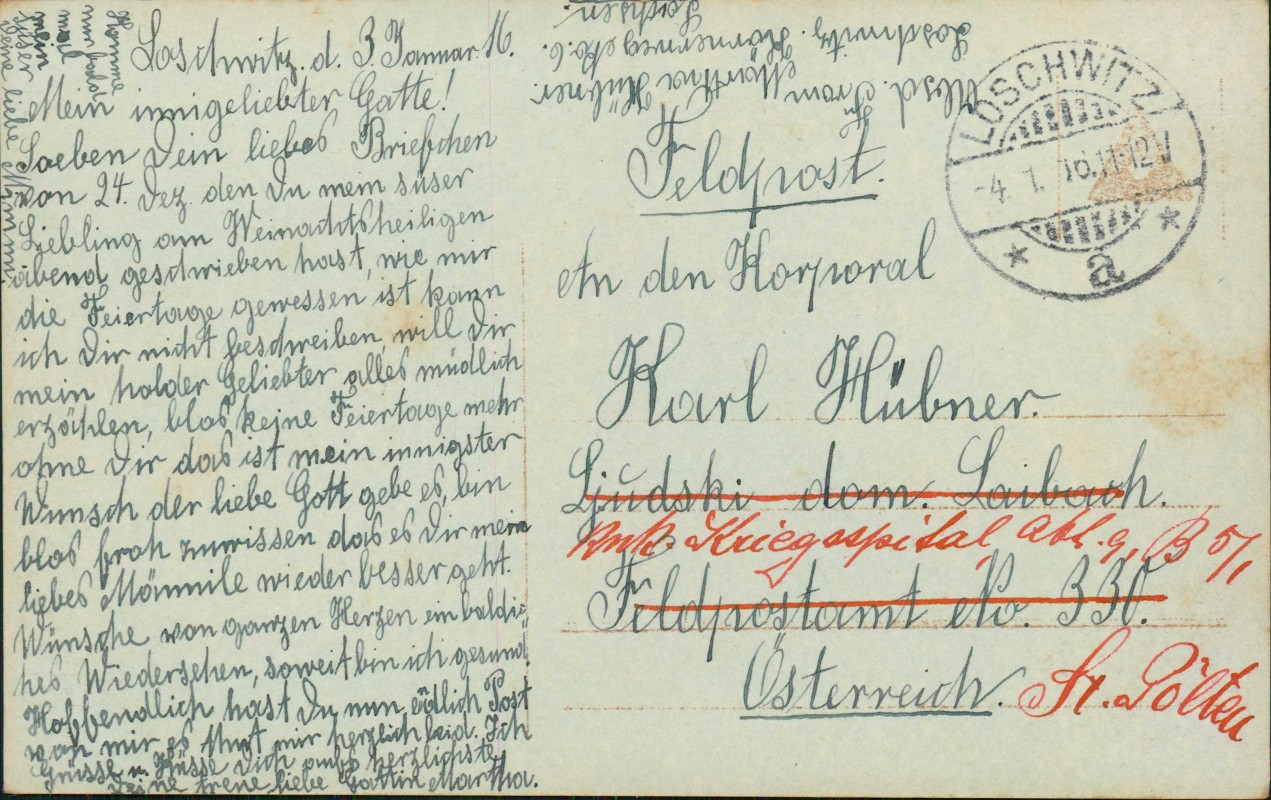 Loschwitz. d. 3. Januar. 16.
Mein innigeliebter Gatte!
Soeben Dein liebes Briefchen
von 24. Dez. den Du mein süser
Liebling am Weinachtsheiligen
abend geschrieben hast, wie mir
die Feiertage gewessen ist kann
ich Dir nicht beschreiben will Dir
mein holder Geliebter alles müdlich
erzählen, blos keine Feiertage mehr
ohne Dir das ist mein innigster
Wunsch der liebe Gott gebe es, bin
blos froh zuwissen das es Dir mein
liebes Männile wieder besser geht.
Wünsche von ganzen Herzen ein baldi-
hes Wiedersehen, soweit bin ich gesund.
Hoffendlich hast Du nun, Post
von mir es thut mir herzlich leid. Ich
Grüsse u. Küsse Dich aufs herzlichste
Deine treue liebe Gattin Martha.
Komme
nun bald
mal
mein
süser
Deine liebe Mammi
Absd. Frau
Martha Hübner
Loschwitz. Körnerweg No. 6.
Sachsen.
Feldpost.
An den Korporal
Karl Hübner.
Ljudski dom. Laibach.
Kriegsspital Abt. 9, B 5/1
Feldpostamt No. 330.
Österreich. St. Pölten
LOSCHWITZ
-4. 1. 16. 11-12 V
* a *